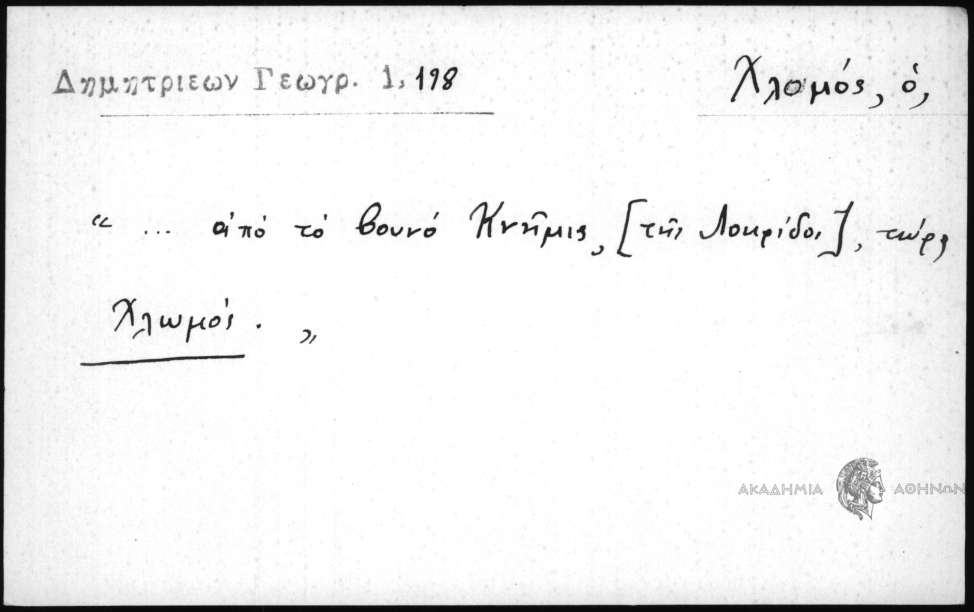 Δημητριεων Γεωγρ. 1, 198
Χλομός, ὁ,
“ ... ἀπό τό βουνό Κνῆμις, [τῆς Λοκρίδος], τώρα
Χλωμός . „
ΑΚΑΔΗΜΙΑ ΑΘΗΝΩΝ